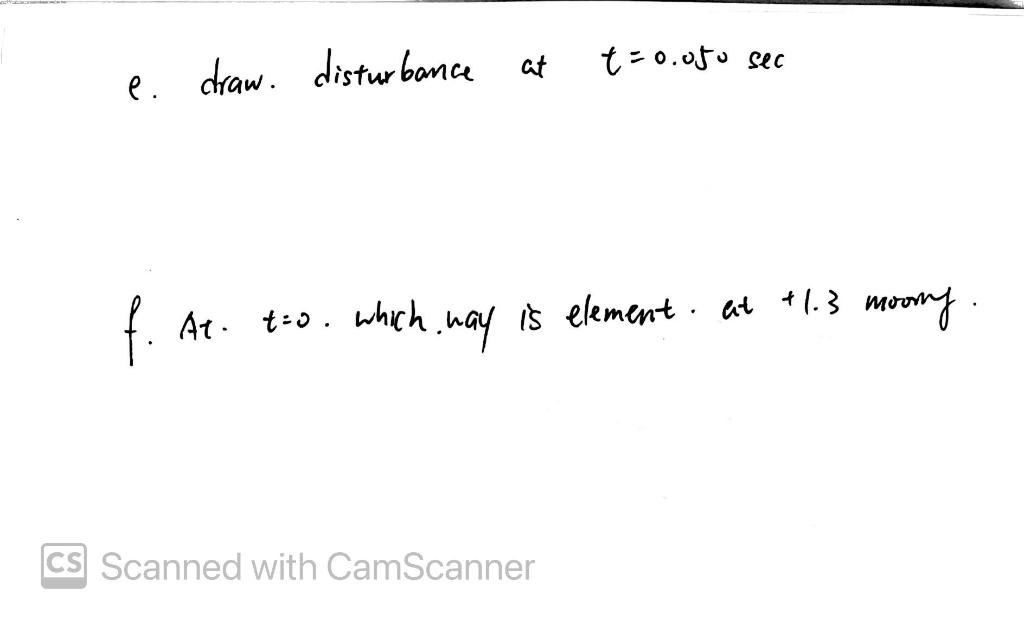 e. draw. disturbance at t=0.050 sec
f. At. t=0. which way is element. at +1.3 moving.
CS Scanned with CamScanner